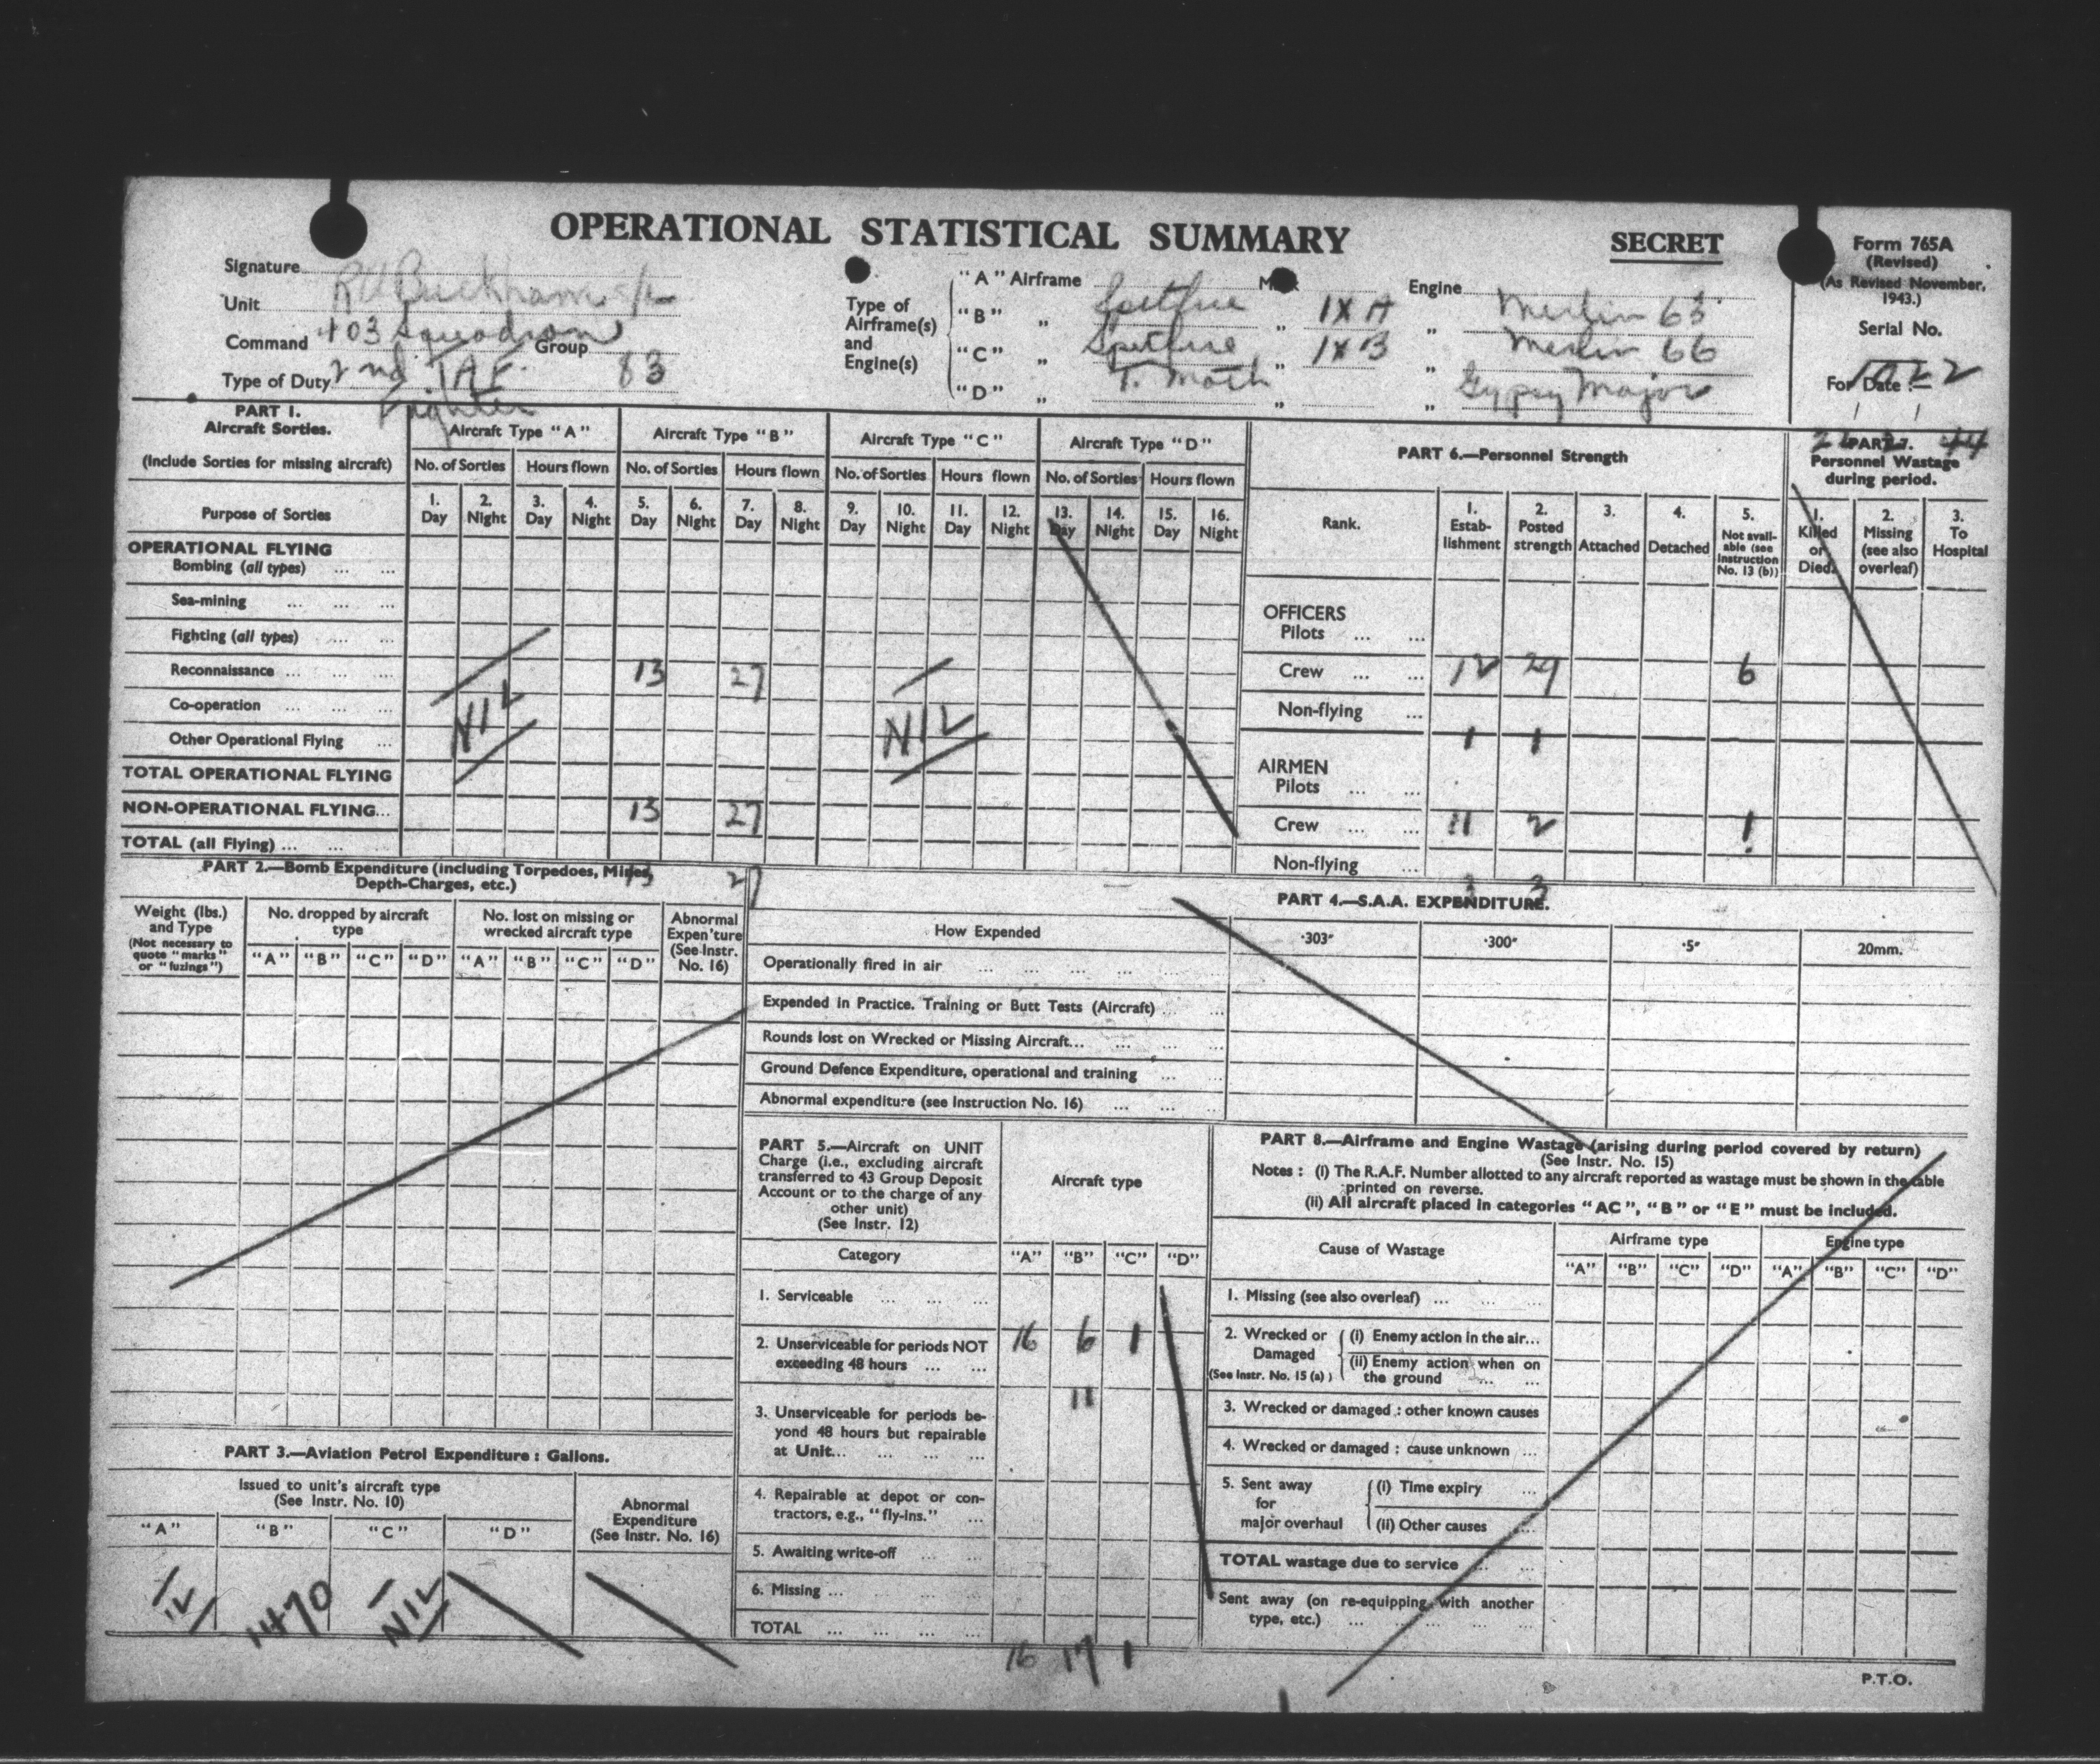 OPERATIONAL STATISTICAL SUMMARY
SECRET
Form 765A
(Revised)
(As Revised November, 1943.)
Serial No.
1022
For Date :—
22 44
Signature R.V. Buckham S/L
Unit 403 Squadron
Command 2nd TAF. Group 83
Type of Duty Fighter
Type of Airframe(s) and Engine(s)
"A" Airframe Spitfire Mark IX A Engine Merlin 63
"B" „ Spitfire „ IX B „ Merlin 66
"C" „ T. Moth „ „ Gypsy Major
"D" „ „ „
PART 1.
Aircraft Sorties.
(Include Sorties for missing aircraft)
Aircraft Type "A" Aircraft Type "B" Aircraft Type "C" Aircraft Type "D"
No. of Sorties Hours flown No. of Sorties Hours flown No. of Sorties Hours flown No. of Sorties Hours flown
Purpose of Sorties
1. Day 2. Night 3. Day 4. Night 5. Day 6. Night 7. Day 8. Night 9. Day 10. Night 11. Day 12. Night 13. Day 14. Night 15. Day 16. Night
OPERATIONAL FLYING
Bombing (all types) ... ...
Sea-mining ... ... ...
Fighting (all types) ... ...
Reconnaissance ... ... ... 13 27
Co-operation ... ... ...
NIL NIL
Other Operational Flying ...
TOTAL OPERATIONAL FLYING
NON-OPERATIONAL FLYING... 13 27
TOTAL (all Flying) ... ...
13 27
PART 6.—Personnel Strength
Rank.
1. Estab-lishment
2. Posted strength
3. Attached
4. Detached
5. Not avail-able (see Instruction No. 13 (b))
OFFICERS
Pilots ... ...
Crew ... ... 12 29 6
Non-flying ...
1 1
AIRMEN
Pilots ... ...
Crew ... ... 11 2 1
Non-flying ...
3 3
PART 7.
Personnel Wastage during period.
1. Killed or Died.
2. Missing (see also overleaf)
3. To Hospital
PART 2.—Bomb Expenditure (including Torpedoes, Mines, Depth-Charges, etc.)
Weight (lbs.) and Type
(Not necessary to quote "marks" or "fuzings")
No. dropped by aircraft type
No. lost on missing or wrecked aircraft type
Abnormal Expen'ture (See Instr. No. 16)
"A" "B" "C" "D" "A" "B" "C" "D"
PART 4.—S.A.A. EXPENDITURE.
How Expended ·303" ·300" ·5" 20mm.
Operationally fired in air ... ... ... ... ...
Expended in Practice. Training or Butt Tests (Aircraft) ... ...
Rounds lost on Wrecked or Missing Aircraft... ... ... ...
Ground Defence Expenditure, operational and training ... ...
Abnormal expenditure (see Instruction No. 16) ... ... ...
PART 5.—Aircraft on UNIT Charge (i.e., excluding aircraft transferred to 43 Group Deposit Account or to the charge of any other unit)
(See Instr. 12)
Aircraft type
Category "A" "B" "C" "D"
1. Serviceable ... ... ...
2. Unserviceable for periods NOT exceeding 48 hours ... ... 16 6 1
11
3. Unserviceable for periods be-yond 48 hours but repairable at Unit... ... ... ...
4. Repairable at depot or con-tractors, e.g., "fly-ins." ...
5. Awaiting write-off ... ...
6. Missing ... ... ... ...
TOTAL ... ... ... ...
16 17 1
PART 8.—Airframe and Engine Wastage (arising during period covered by return)
(See Instr. No. 15)
Notes : (i) The R.A.F. Number allotted to any aircraft reported as wastage must be shown in the table printed on reverse.
(ii) All aircraft placed in categories "AC", "B" or "E" must be included.
Cause of Wastage Airframe type Engine type
"A" "B" "C" "D" "A" "B" "C" "D"
1. Missing (see also overleaf) ... ... ...
2. Wrecked or Damaged (See Instr. No. 15 (a) )
(i) Enemy action in the air...
(ii) Enemy action when on the ground ... ...
3. Wrecked or damaged : other known causes
4. Wrecked or damaged : cause unknown ...
5. Sent away for major overhaul
(i) Time expiry ...
(ii) Other causes ...
TOTAL wastage due to service ... ...
Sent away (on re-equipping with another type, etc.) ... ... ... ... ...
PART 3.—Aviation Petrol Expenditure : Gallons.
Issued to unit's aircraft type
(See Instr. No. 10)
Abnormal Expenditure (See Instr. No. 16)
"A" "B" "C" "D"
1470 NIL
P.T.O.